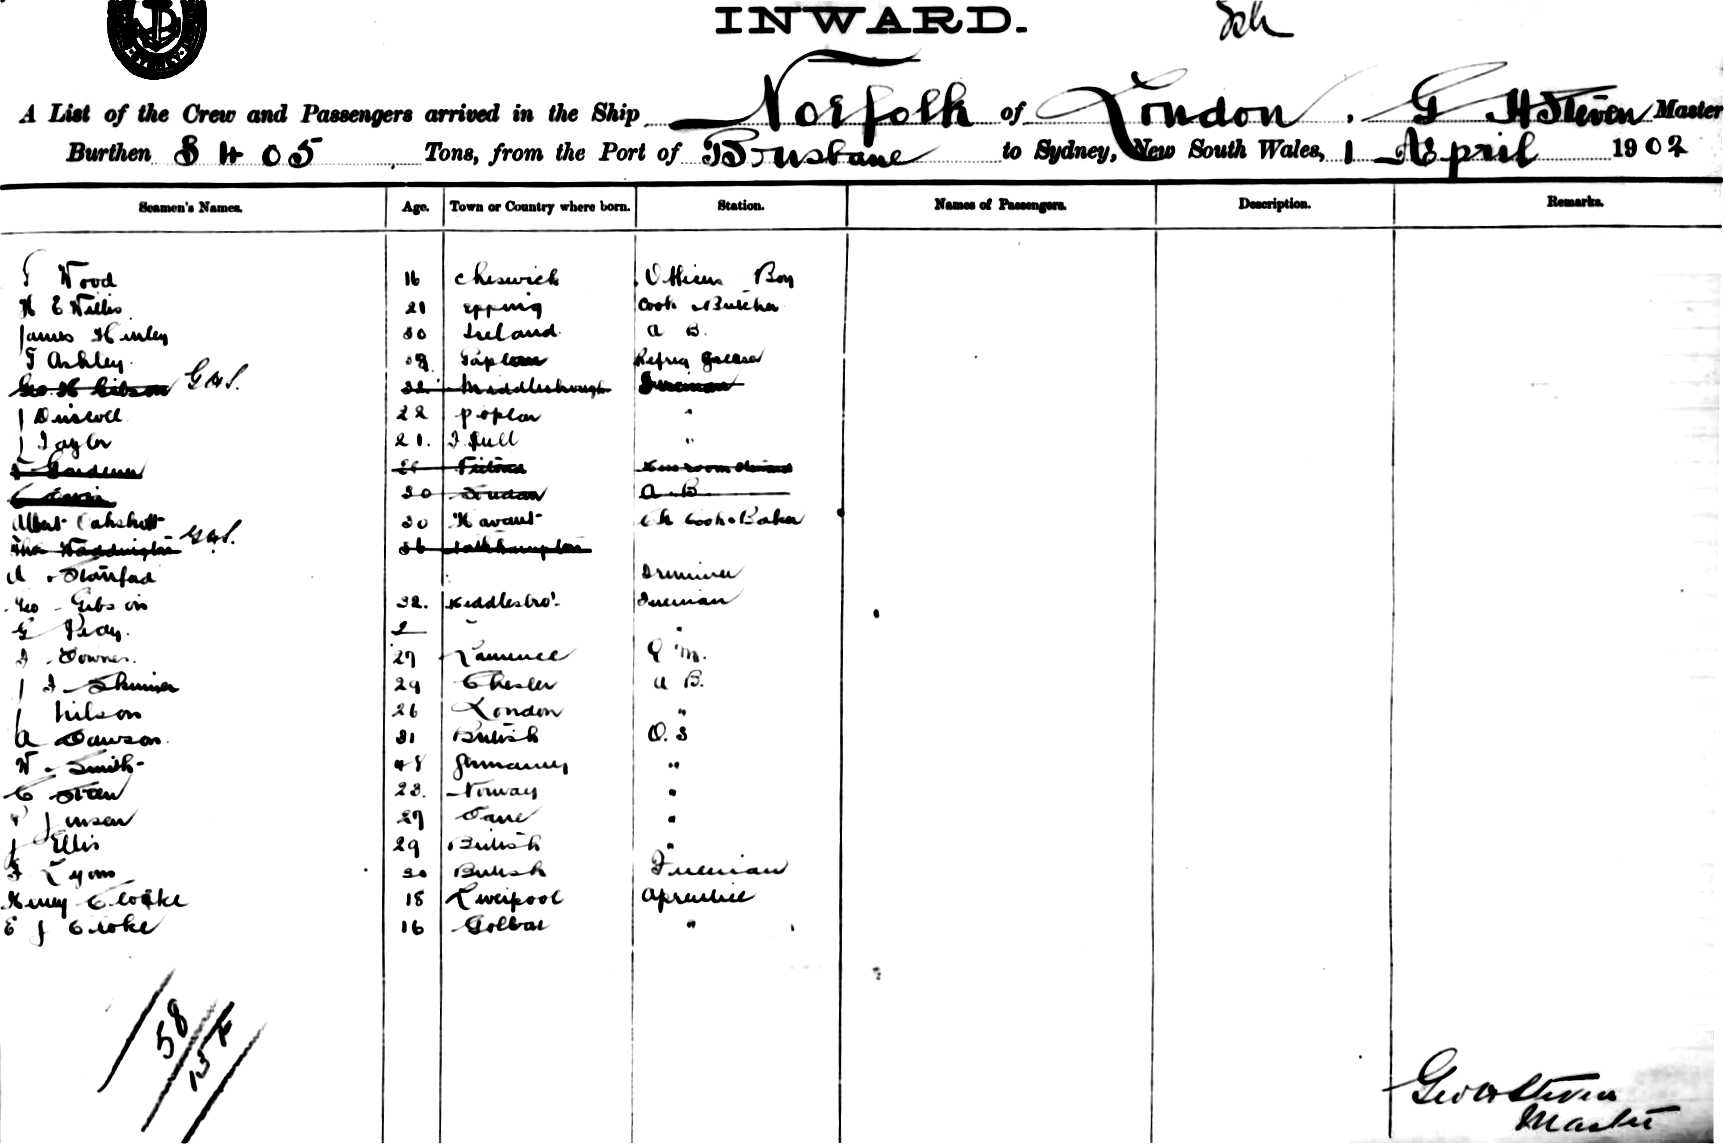 INWARD.
A List of the Crew and Passengers arrived in the Ship Norfolk of London, G H Steven Master
Burthen 8405 Tons, from the Port of Brisbane to Sydney, New South Wales, 1 April 1902
Seamen's Names. Age. Town or Country where born. Station. Names of Passengers. Description. Remarks.
Wood 16 Cheswick Officers Boy
H E Willis 21 Epping Cook Butcher
James Hurley 30 Ireland A B.
T Ashley. Refrig Greaser
Geo. H Gibson G H S. 32 Middlesborough Fireman
J Driscoll 22 Poplar "
J Taylor 21. Hull "
Gardener Messroom Steward
20 London A B
Albert Oakshott 20 Havant Ch Cook & Baker
Waddington G H S. 36
A Stanford Trimmer
Geo Gibson 32. Middlesbro'. Fireman
G "
Downes. 27 Q M.
J Skinner 29 Chester A B.
J Nilson 26 London "
A Dawson. 31 British O. S
W. Smith 48 Germany "
C 23. Norway "
P Jensen 27 Dane "
J Ellis 29 British "
Lyons 30 British Fireman
Henry Cloake 18 Liverpool Aprentice
E J Croke 16 "
58
154
Geo H Steven
Master